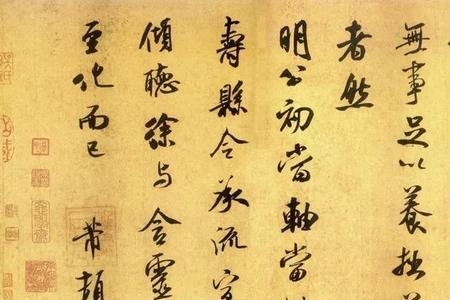 無事足以養拙
者然
明公初當軸當
壽縣令承流宣
傾聽徐与含靈
至化而已 芾頓